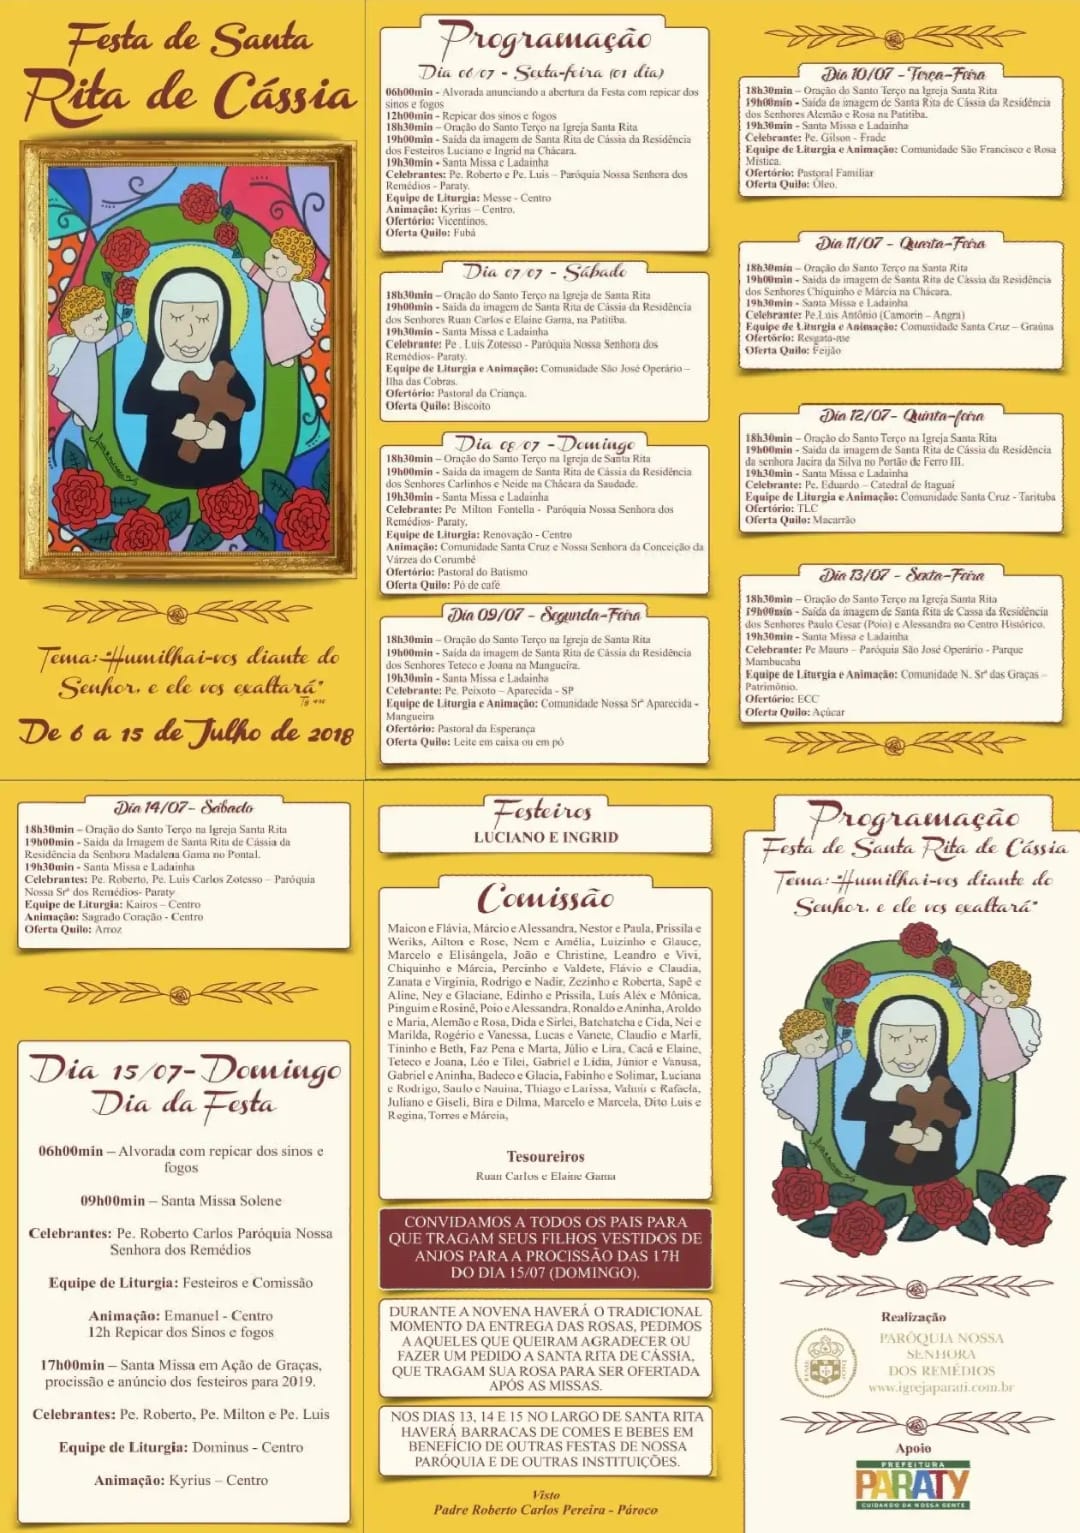 Festa de Santa
Rita de Cássia
Tema: "Humilhai-vos diante do
Senhor, e ele vos exaltará"
De 6 a 15 de Julho de 2018
Programação
Dia 06/07 - Sexta-feira (01 dia)
06h00min - Alvorada anunciando a abertura da Festa com repicar dos
sinos e fogos
12h00min - Repicar dos sinos e fogos
18h30min – Oração do Santo Terço na Igreja Santa Rita
19h00min - Saída da imagem de Santa Rita de Cássia da Residência
dos Festeiros Luciano e Ingrid na Chácara.
19h30min - Santa Missa e Ladainha
Celebrantes: Pe. Roberto e Pe. Luis – Paróquia Nossa Senhora dos
Remédios - Paraty.
Equipe de Liturgia: Messe - Centro
Animação: Kyrius – Centro.
Ofertório: Vicentinos.
Oferta Quilo: Fubá
Dia 07/07 - Sábado
18h30min – Oração do Santo Terço na Igreja de Santa Rita
19h00min - Saída da imagem de Santa Rita de Cássia da Residência
dos Senhores Ruan Carlos e Elaine Gama, na Patitiba.
19h30min - Santa Missa e Ladainha
Celebrante: Pe . Luis Zotesso - Paróquia Nossa Senhora dos
Remédios- Paraty.
Equipe de Liturgia e Animação: Comunidade São José Operário –
Ilha das Cobras.
Ofertório: Pastoral da Criança.
Oferta Quilo: Biscoito
Dia 08/07 - Domingo
18h30min – Oração do Santo Terço na Igreja de Santa Rita
19h00min - Saída da imagem de Santa Rita de Cássia da Residência
dos Senhores Carlinhos e Neide na Chácara da Saudade.
19h30min - Santa Missa e Ladainha
Celebrante: Pe Milton Fontella - Paróquia Nossa Senhora dos
Remédios- Paraty,
Equipe de Liturgia: Renovação - Centro
Animação: Comunidade Santa Cruz e Nossa Senhora da Conceição da
Várzea do Corumbê
Ofertório: Pastoral do Batismo
Oferta Quilo: Pó de café
Dia 09/07 - Segunda-Feira
18h30min – Oração do Santo Terço na Igreja de Santa Rita
19h00min - Saída da imagem de Santa Rita de Cássia da Residência
dos Senhores Teteco e Joana na Mangueira.
19h30min - Santa Missa e Ladainha
Celebrante: Pe. Peixoto – Aparecida - SP
Equipe de Liturgia e Animação: Comunidade Nossa Srª Aparecida -
Mangueira
Ofertório: Pastoral da Esperança
Oferta Quilo: Leite em caixa ou em pó
Dia 10/07 - Terça-Feira
18h30min – Oração do Santo Terço na Igreja Santa Rita
19h00min - Saída da imagem de Santa Rita de Cássia da Residência
dos Senhores Alemão e Rosa na Patitiba.
19h30min - Santa Missa e Ladainha
Celebrante: Pe. Gilson - Frade
Equipe de Liturgia e Animação: Comunidade São Francisco e Rosa
Mística.
Ofertório: Pastoral Familiar
Oferta Quilo: Óleo.
Dia 11/07 - Quarta-Feira
18h30min – Oração do Santo Terço na Santa Rita
19h00min - Saída da imagem de Santa Rita de Cássia da Residência
dos Senhores Chiquinho e Márcia na Chácara.
19h30min - Santa Missa e Ladainha
Celebrante: Pe.Luis Antônio (Camorin – Angra)
Equipe de Liturgia e Animação: Comunidade Santa Cruz – Graúna
Ofertório: Resgata-me
Oferta Quilo: Feijão
Dia 12/07- Quinta-feira
18h30min – Oração do Santo Terço na Igreja Santa Rita
19h00min - Saída da imagem de Santa Rita de Cássia da Residência
da senhora Jacira da Silva no Portão de Ferro III.
19h30min - Santa Missa e Ladainha
Celebrante: Pe. Eduardo – Catedral de Itaguaí
Equipe de Liturgia e Animação: Comunidade Santa Cruz - Tarituba
Ofertório: TLC
Oferta Quilo: Macarrão
Dia 13/07 - Sexta-Feira
18h30min – Oração do Santo Terço na Igreja Santa Rita
19h00min - Saída da imagem de Santa Rita de Cassa da Residência
dos Senhores Paulo Cesar (Poio) e Alessandra no Centro Histórico.
19h30min - Santa Missa e Ladainha
Celebrante: Pe Mauro – Paróquia São José Operário - Parque
Mambucaba
Equipe de Liturgia e Animação: Comunidade N. Srª das Graças –
Patrimônio.
Ofertório: ECC
Oferta Quilo: Açúcar
Dia 14/07- Sábado
18h30min – Oração do Santo Terço na Igreja Santa Rita
19h00min - Saída da Imagem de Santa Rita de Cássia da
Residência da Senhora Madalena Gama no Pontal.
19h30min - Santa Missa e Ladainha
Celebrantes: Pe. Roberto, Pe. Luis Carlos Zotesso – Paróquia
Nossa Srª dos Remédios- Paraty
Equipe de Liturgia: Kairos – Centro
Animação: Sagrado Coração - Centro
Oferta Quilo: Arroz
Dia 15/07- Domingo
Dia da Festa
06h00min – Alvorada com repicar dos sinos e
fogos
09h00min – Santa Missa Solene
Celebrantes: Pe. Roberto Carlos Paróquia Nossa
Senhora dos Remédios
Equipe de Liturgia: Festeiros e Comissão
Animação: Emanuel - Centro
12h Repicar dos Sinos e fogos
17h00min – Santa Missa em Ação de Graças,
procissão e anúncio dos festeiros para 2019.
Celebrantes: Pe. Roberto, Pe. Milton e Pe. Luis
Equipe de Liturgia: Dominus - Centro
Animação: Kyrius – Centro
Festeiros
LUCIANO E INGRID
Comissão
Maicon e Flávia, Márcio e Alessandra, Nestor e Paula, Prissila e
Weriks, Ailton e Rose, Nem e Amélia, Luizinho e Glauce,
Marcelo e Elisângela, João e Christine, Leandro e Vivi,
Chiquinho e Márcia, Percinho e Valdete, Flávio e Claudia,
Zanata e Virginia, Rodrigo e Nadir, Zezinho e Roberta, Sapê e
Aline, Ney e Glaciane, Edinho e Prissila, Luis Aléx e Mônica,
Pinguim e Rosinê, Poio e Alessandra, Ronaldo e Aninha, Aroldo
e Maria, Alemão e Rosa, Dida e Sirlei, Batchatcha e Cida, Nei e
Marilda, Rogério e Vanessa, Lucas e Vanete, Claudio e Marli,
Tininho e Beth, Faz Pena e Marta, Júlio e Lira, Cacá e Elaine,
Teteco e Joana, Léo e Tilei, Gabriel e Lidia, Júnior e Vanusa,
Gabriel e Aninha, Badeco e Glacia, Fabinho e Solimar, Luciana
e Rodrigo, Saulo e Nauina, Thiago e Larissa, Valmir e Rafaela,
Juliano e Giseli, Bira e Dilma, Marcelo e Marcela, Dito Luis e
Regina, Torres e Márcia,
Tesoureiros
Ruan Carlos e Elaine Gama
CONVIDAMOS A TODOS OS PAIS PARA
QUE TRAGAM SEUS FILHOS VESTIDOS DE
ANJOS PARA A PROCISSÃO DAS 17H
DO DIA 15/07 (DOMINGO).
DURANTE A NOVENA HAVERÁ O TRADICIONAL
MOMENTO DA ENTREGA DAS ROSAS, PEDIMOS
A AQUELES QUE QUEIRAM AGRADECER OU
FAZER UM PEDIDO A SANTA RITA DE CÁSSIA,
QUE TRAGAM SUA ROSA PARA SER OFERTADA
APÓS AS MISSAS.
NOS DIAS 13, 14 E 15 NO LARGO DE SANTA RITA
HAVERÁ BARRACAS DE COMES E BEBES EM
BENEFÍCIO DE OUTRAS FESTAS DE NOSSA
PARÓQUIA E DE OUTRAS INSTITUIÇÕES.
Visto
Padre Roberto Carlos Pereira - Pároco
Programação
Festa de Santa Rita de Cássia
Tema: "Humilhai-vos diante do
Senhor, e ele vos exaltará"
Realização
PARÓQUIA NOSSA
SENHORA
DOS REMÉDIOS
www.igrejaparati.com.br
Apoio
PREFEITURA
PARATY
CUIDANDO DA NOSSA GENTE